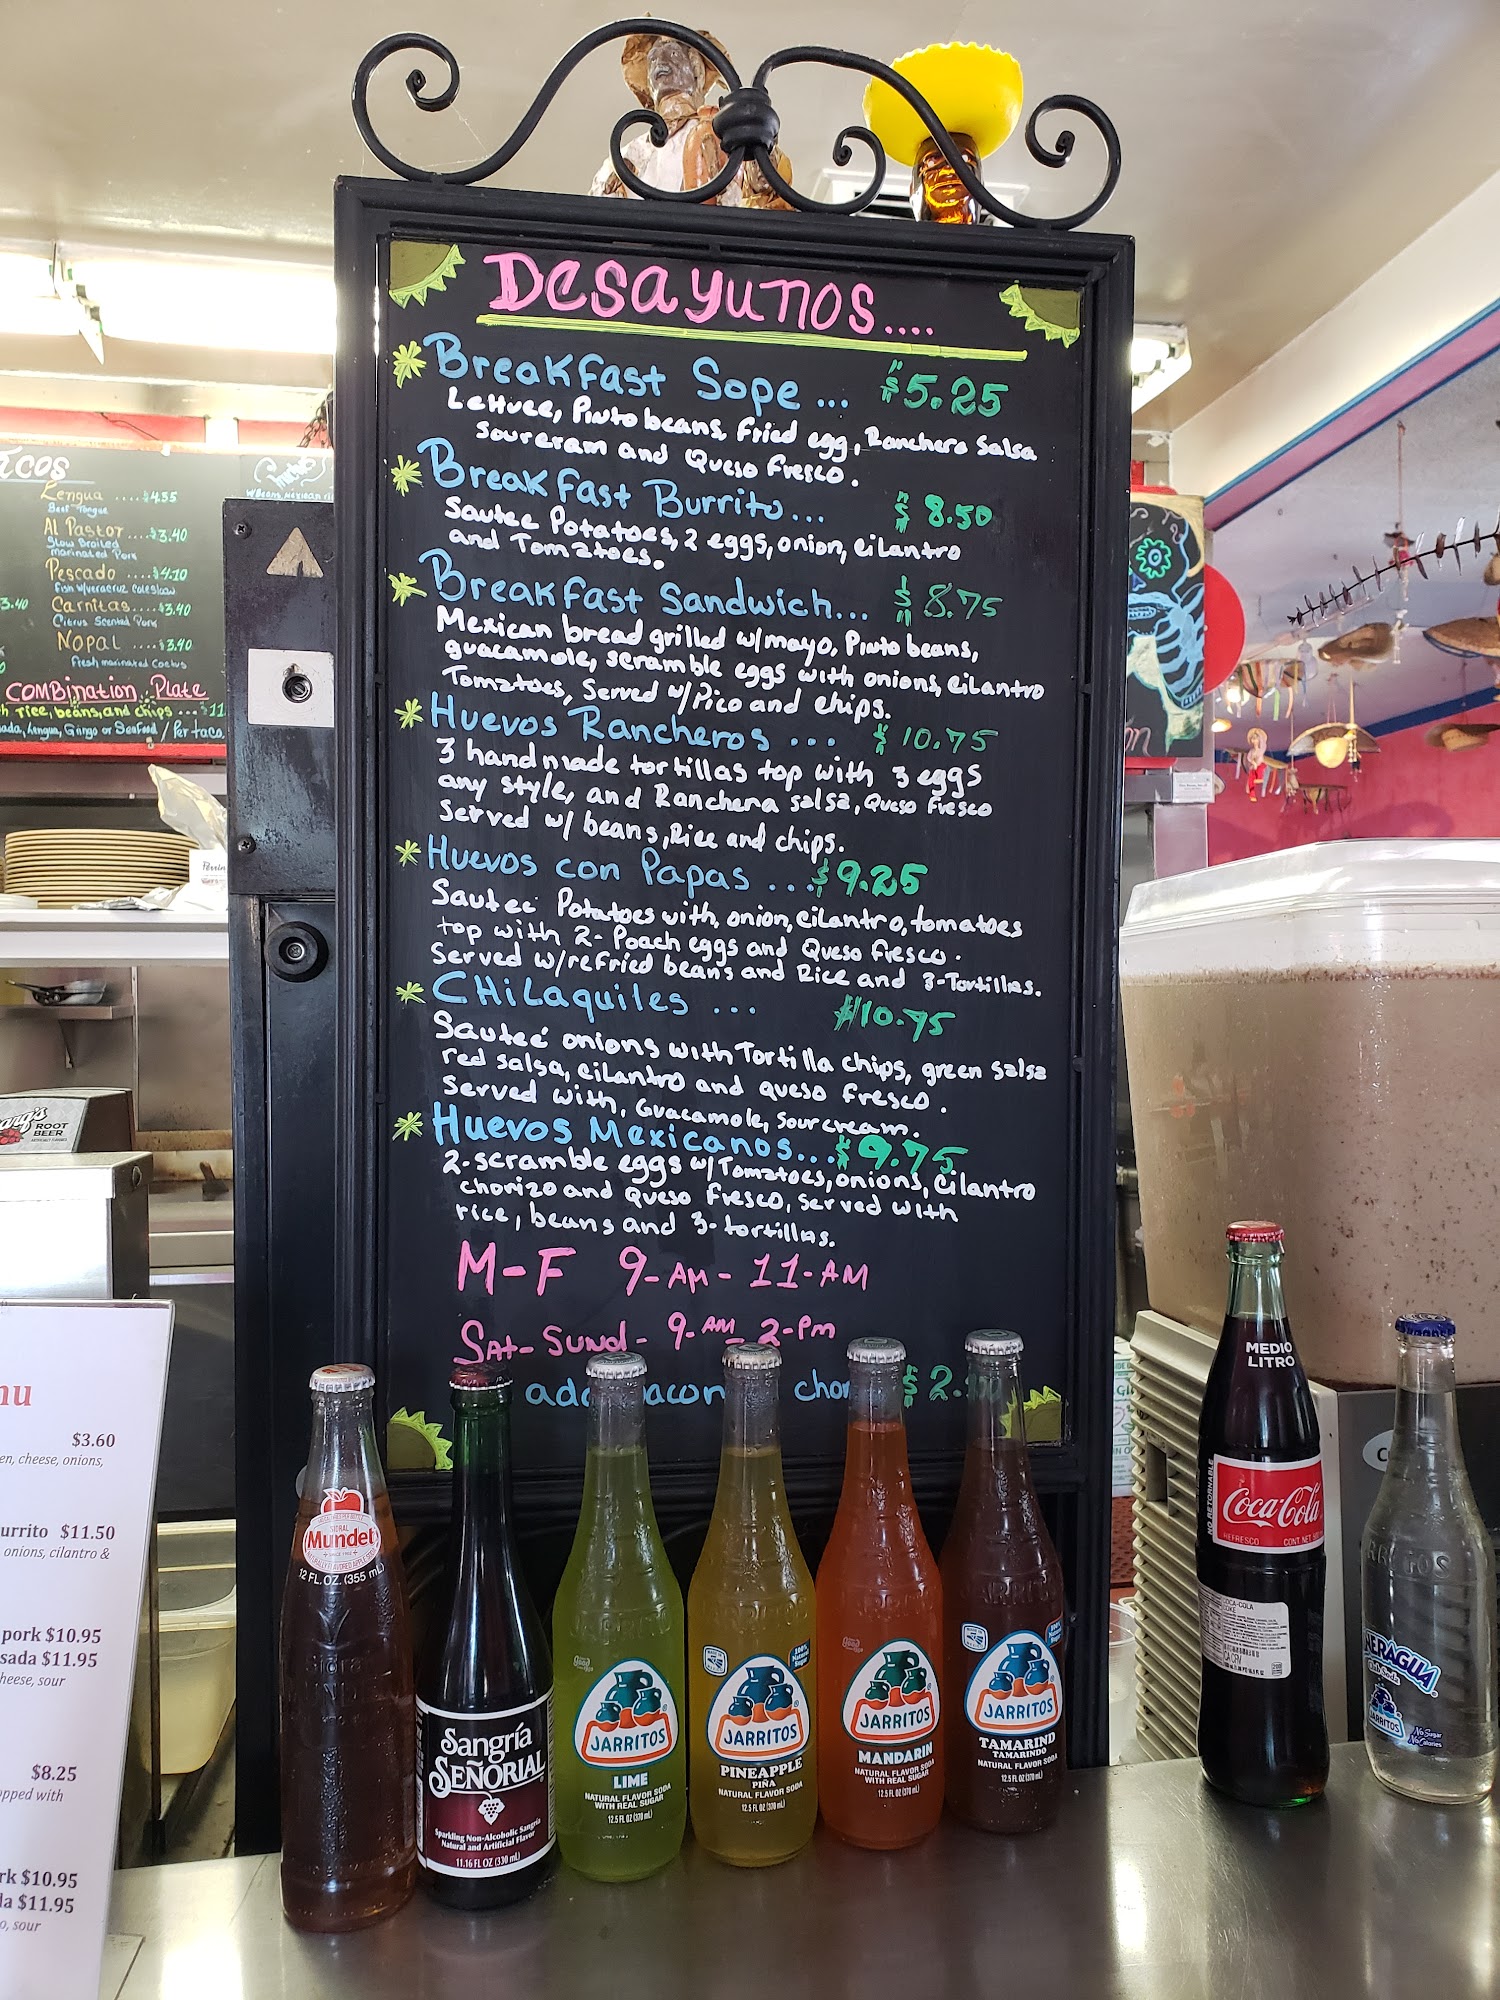 Desayunos....
Breakfast Sope ... $5.25
Lettuce, Pinto beans, Fried egg, Ranchero Salsa
Sourcram and Queso Fresco.
Breakfast Burrito... $8.50
Sautee Potatoes, 2 eggs, onion, cilantro
and Tomatoes.
Breakfast Sandwich... $8.75
Mexican bread grilled w/mayo, Pinto beans,
guacamole, scramble eggs with onions, cilantro
Tomatoes, Served w/Pico and chips.
Huevos Rancheros ... $10.75
3 handmade tortillas top with 3 eggs
any style, and Ranchera salsa, Queso Fresco
Served w/ beans, Rice and chips.
Huevos con Papas ... $9.25
Sautee Potatoes with, onion, cilantro, tomatoes
top with 2- Poach eggs and Queso fresco.
Served w/refried beans and Rice and 3-Tortillas.
Chilaquiles ... $10.75
Sauteé onions with Tortilla chips, green salsa
red salsa, cilantro and queso fresco.
Served with, Guacamole, sour cream.
Huevos Mexicanos... $9.75
2-scramble eggs w/Tomatoes, onions, cilantro
chorizo and Queso Fresco, served with
rice, beans and 3-tortillas.
M-F 9-AM-11-AM
Sat-Sund-9-AM-2-PM
add
Lengua ....$4.35
Beef Tongue
Al Pastor ...$3.40
Slow Broiled
marinated Pork
Pescado ....$4.10
Fish w/veracruz coleslaw
Carnitas...$3.40
Citrus Scented Pork
Nopal ....$3.40
Fresh marinated Cactus
Combination Plate
rice, beans, and chips
Lengua, Gringo or Seafood / Per taco
ROOT
BEER
$3.60
cheese, onions,
$11.50
onions, cilantro &
pork $10.95
$11.95
sour
$8.25
with
$10.95
$11.95
sour
SIDRAL
Mundet
12 FL. OZ. (355 mL)
Sangría
SEÑORIAL
Sparkling Non-Alcoholic Sangria
Natural and Artificial Flavor
11.16 FL OZ (330 mL)
JARRITOS
LIME
NATURAL FLAVOR SODA
WITH REAL SUGAR
12.5 FL OZ (370 mL)
100%
Natural
Sugar
JARRITOS
PINEAPPLE
PIÑA
NATURAL FLAVOR SODA
12.5 FL OZ (370 mL)
JARRITOS
MANDARIN
NATURAL FLAVOR SODA
WITH REAL SUGAR
12.5 FL OZ (370 mL)
100%
Natural
Sugar
JARRITOS
TAMARIND
TAMARINDO
NATURAL FLAVOR SODA
12.5 FL OZ (370 mL)
MEDIO
LITRO
NO RETORNABLE
Coca-Cola
REFRESCO
Club Soda
JARRITOS
No Sugar
No Calories